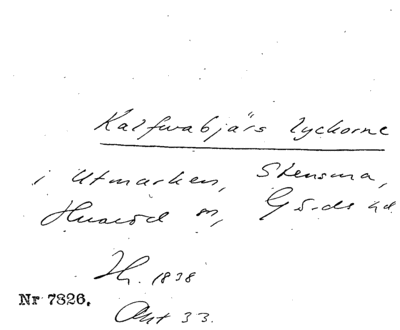 Kalfwabjärs lyckorne
i utmarken, Stensma,
Huaröd sn, Gärds hd
Jh. 1838
Nr 7826.
Akt 33.